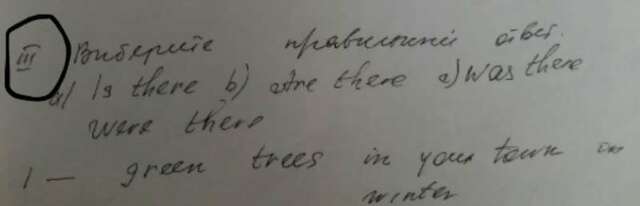 III Выберите правильный ответ.
a) Is there b) Are there c) Was there
Were there
1 — green trees in your town in
winter